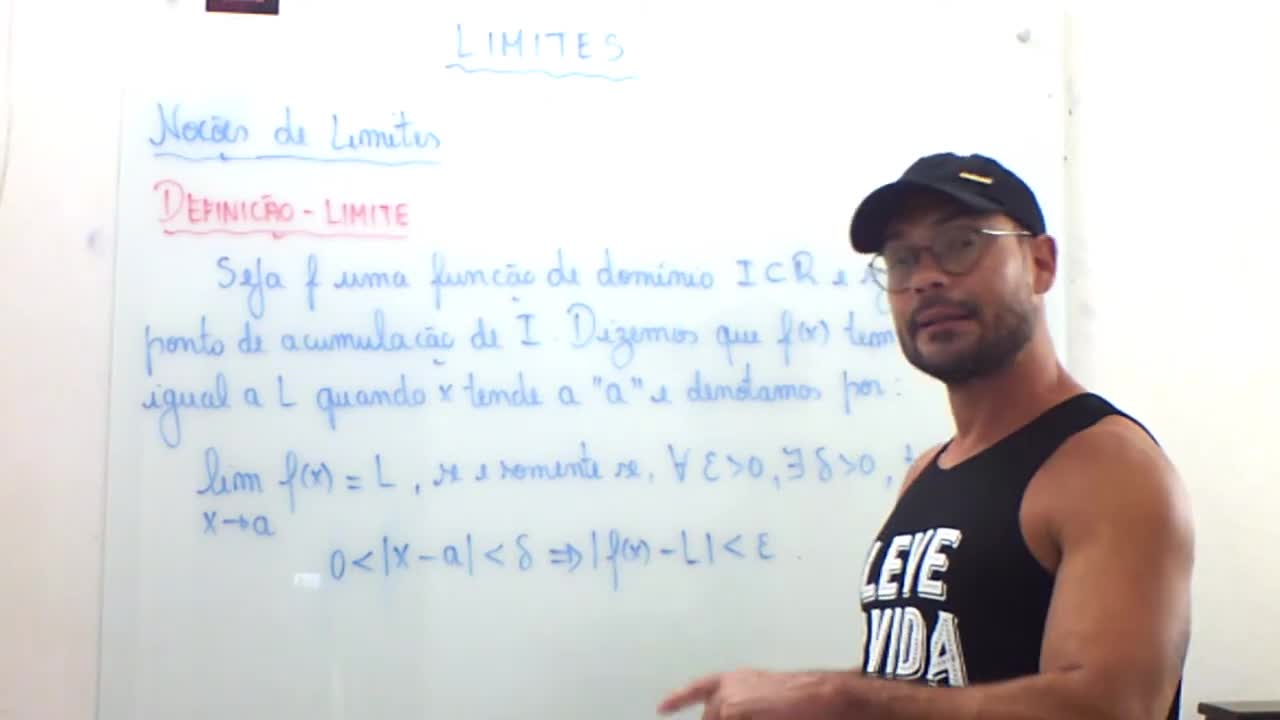 LIMITES
Noções de Limites
DEFINIÇÃO - LIMITE
Seja f uma função de domínio I ⊂ R e
ponto de acumulação de I. Dizemos que f(x) tem
igual a L quando x tende a "a" e denotamos por:
lim f(x) = L, se e somente se, ∀ ε > 0, ∃ δ > 0,
x→a
0 < |x - a| < δ ⇒ |f(x) - L| < ε.
LEVE
VIDA